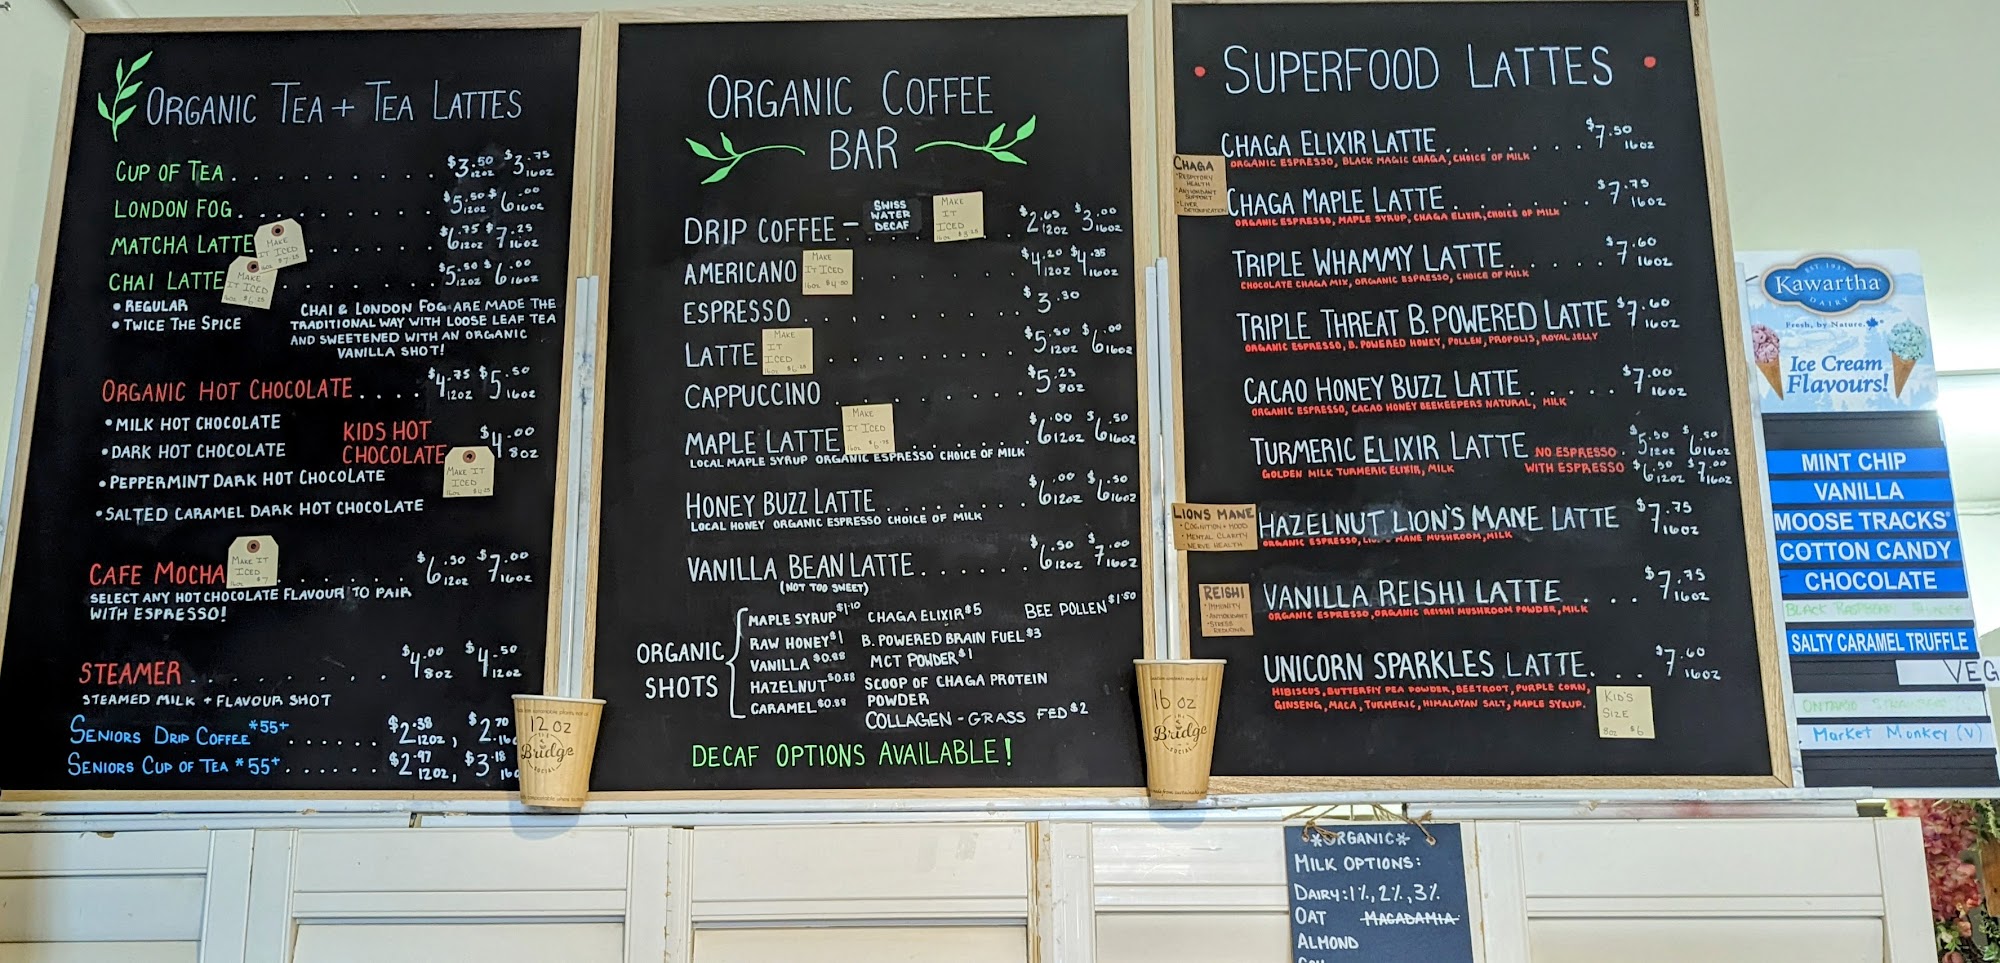 ORGANIC TEA + TEA LATTES
CUP OF TEA . . . . . . . . . $3.50 12OZ $3.75 16OZ
LONDON FOG . . . . . . . . $5.50 12OZ $6.00 16OZ
MATCHA LATTE . . . . . . $6.75 12OZ $7.25 16OZ
MAKE
IT ICED
16OZ $7.25
CHAI LATTE . . . . . . . $5.50 12OZ $6.00 16OZ
MAKE
IT ICED
16OZ $6.25
• REGULAR
• TWICE THE SPICE
CHAI & LONDON FOG ARE MADE THE
TRADITIONAL WAY WITH LOOSE LEAF TEA
AND SWEETENED WITH AN ORGANIC
VANILLA SHOT!
ORGANIC HOT CHOCOLATE . . . . $4.75 12OZ $5.50 16OZ
• MILK HOT CHOCOLATE
• DARK HOT CHOCOLATE
• PEPPERMINT DARK HOT CHOCOLATE
• SALTED CARAMEL DARK HOT CHOCOLATE
KIDS HOT
CHOCOLATE $4.00 8OZ
MAKE IT
ICED
16OZ
CAFE MOCHA . . . . . . $6.50 12OZ $7.00 16OZ
MAKE IT
ICED
$7
SELECT ANY HOT CHOCOLATE FLAVOUR TO PAIR
WITH ESPRESSO!
STEAMER . . . . . . . . $4.00 8OZ $4.50 12OZ
STEAMED MILK + FLAVOUR SHOT
SENIORS DRIP COFFEE *55+ . . . . . . $2.38 12OZ, $2.70 16O
SENIORS CUP OF TEA *55+ . . . . . . $2.97 12OZ, $3.18 16O
12 OZ
THE
Bridge
SOCIAL
ORGANIC COFFEE
BAR
DRIP COFFEE - . . . . $2.65 12OZ $3.00 16OZ
SWISS
WATER
DECAF
MAKE
IT
ICED
AMERICANO . . . . . . $4.20 12OZ $4.35 16OZ
MAKE
IT ICED
16OZ $4.00
ESPRESSO . . . . . . . $3.30
LATTE . . . . . . . . . $5.50 12OZ $6.00 16OZ
MAKE
IT
ICED
CAPPUCCINO . . . . . . . . $5.25 8OZ
MAPLE LATTE . . . . . . $6.00 12OZ $6.50 16OZ
MAKE
IT ICED
16OZ $6.75
LOCAL MAPLE SYRUP ORGANIC ESPRESSO CHOICE OF MILK
HONEY BUZZ LATTE . . . . . . . $6.00 12OZ $6.50 16OZ
LOCAL HONEY ORGANIC ESPRESSO CHOICE OF MILK
VANILLA BEAN LATTE . . . . . . $6.50 12OZ $7.00 16OZ
(NOT TOO SWEET)
ORGANIC
SHOTS
MAPLE SYRUP $1.10
RAW HONEY $1
VANILLA $0.88
HAZELNUT $0.88
CARAMEL $0.88
CHAGA ELIXIR $5
B. POWERED BRAIN FUEL $3
MCT POWDER $1
SCOOP OF CHAGA PROTEIN
POWDER
COLLAGEN - GRASS FED $2
BEE POLLEN $1.50
DECAF OPTIONS AVAILABLE!
16 OZ
THE
Bridge
SOCIAL
SUPERFOOD LATTES
CHAGA ELIXIR LATTE . . . . . . . $7.50 16OZ
ORGANIC ESPRESSO, BLACK MAGIC CHAGA, CHOICE OF MILK
CHAGA
• RESPITORY
HEALTH
• ANTIOXIDANT
SUPPORT
• LIVER
DETOXIFICATION
CHAGA MAPLE LATTE . . . . . . . $7.75 16OZ
ORGANIC ESPRESSO, MAPLE SYRUP, CHAGA ELIXIR, CHOICE OF MILK
TRIPLE WHAMMY LATTE . . . . . . $7.60 16OZ
CHOCOLATE CHAGA MIX, ORGANIC ESPRESSO, CHOICE OF MILK
TRIPLE THREAT B. POWERED LATTE $7.60 16OZ
ORGANIC ESPRESSO, B. POWERED HONEY, POLLEN, PROPOLIS, ROYAL JELLY
CACAO HONEY BUZZ LATTE . . . . . $7.00 16OZ
ORGANIC ESPRESSO, CACAO HONEY BEEKEEPERS NATURAL, MILK
TURMERIC ELIXIR LATTE NO ESPRESSO . $5.50 12OZ $6.50 16OZ
GOLDEN MILK TURMERIC ELIXIR, MILK WITH ESPRESSO $6.50 12OZ $7.00 16OZ
LIONS MANE
• COGNITION + MOOD
• MENTAL CLARITY
• NERVE HEALTH
HAZELNUT LION'S MANE LATTE $7.75 16OZ
ORGANIC ESPRESSO, LIONS MANE MUSHROOM, MILK
REISHI
• IMMUNITY
• ANTIOXIDANT
• STRESS
REDUCING
VANILLA REISHI LATTE . . . . $7.75 16OZ
ORGANIC ESPRESSO, ORGANIC REISHI MUSHROOM POWDER, MILK
UNICORN SPARKLES LATTE . . . . $7.60 16OZ
HIBISCUS, BUTTERFLY PEA POWDER, BEETROOT, PURPLE CORN,
GINSENG, MACA, TURMERIC, HIMALAYAN SALT, MAPLE SYRUP.
KID'S
SIZE
8OZ $6
EST. 1937
Kawartha
DAIRY
Fresh, by Nature.
Ice Cream
Flavours!
MINT CHIP
VANILLA
MOOSE TRACKS
COTTON CANDY
CHOCOLATE
BLACK RASPBERRY
SALTY CARAMEL TRUFFLE
VEG
ONTARIO
Market Monkey (V)
*ORGANIC*
MILK OPTIONS:
DAIRY: 1%, 2%, 3%
OAT MACADAMIA
ALMOND